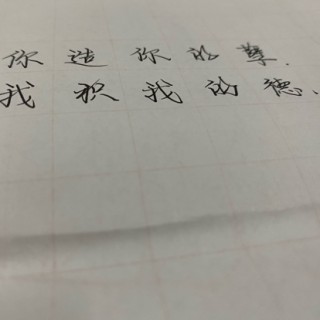 你造你的孽.
我积我的德.